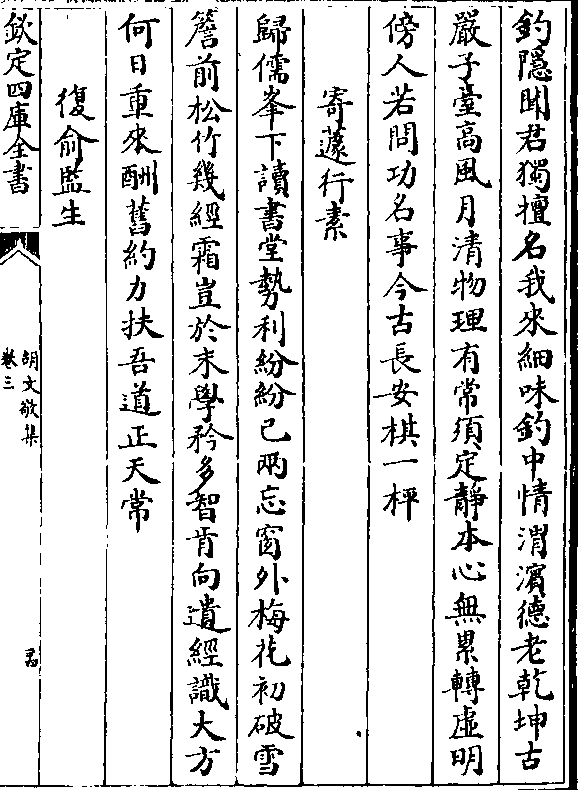 釣隱聞君獨擅名我來細味釣中情渭濱德老乾坤古
嚴子臺高風月清物理有常須定靜本心無累轉虛明
傍人若問功名事今古長安棋一枰
寄蘧行素
歸儒峯下讀書堂勢利紛紛已兩忘窗外梅花初破雪
簷前松竹幾經霜豈於末學矜多智肯向遺經識大方
何日重來酬舊約力扶吾道正天常
復俞監生
欽定四庫全書
胡文敬集
卷三